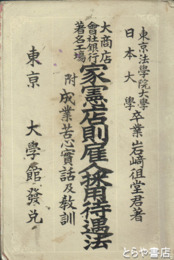 東京法學院大學
日本大學
卒業 岩﨑徂堂君著
大商店
會社銀行
著名工場
家憲店則雇人採用待遇法
附 成業苦心實話及教訓
東京 大學館發兌
とらや書店